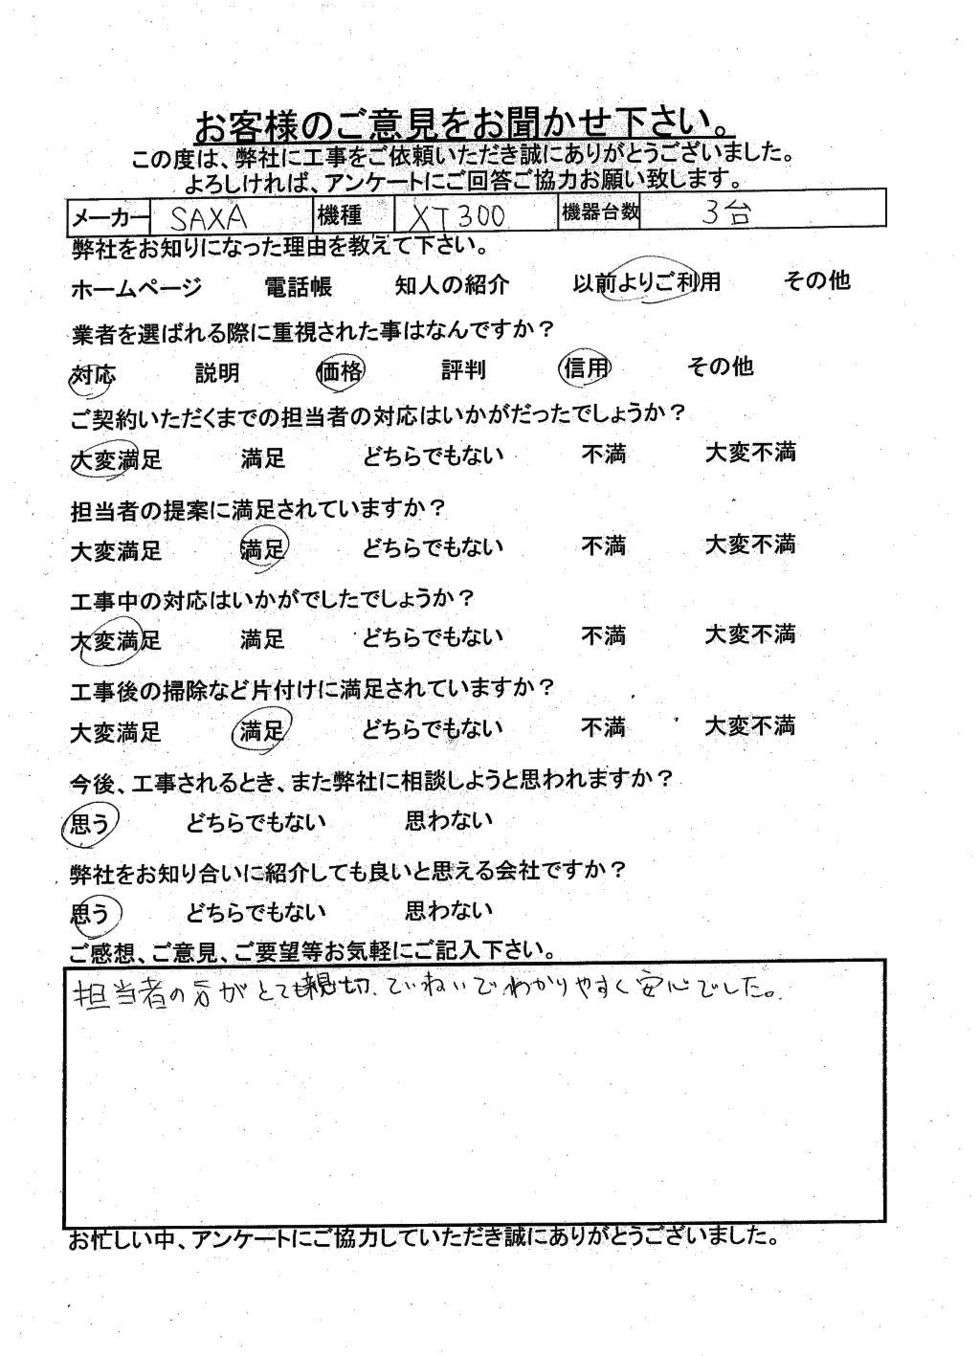 お客様のご意見をお聞かせ下さい。
この度は、弊社に工事をご依頼いただき誠にありがとうございました。
よろしければ、アンケートにご回答ご協力お願い致します。
メーカー SAXA 機種 XT300 機器台数 3台
弊社をお知りになった理由を教えて下さい。
ホームページ 電話帳 知人の紹介 以前よりご利用 その他
業者を選ばれる際に重視された事はなんですか？
対応 説明 価格 評判 信用 その他
ご契約いただくまでの担当者の対応はいかがだったでしょうか？
大変満足 満足 どちらでもない 不満 大変不満
担当者の提案に満足されていますか？
大変満足 満足 どちらでもない 不満 大変不満
工事中の対応はいかがでしたでしょうか？
大変満足 満足 どちらでもない 不満 大変不満
工事後の掃除など片付けに満足されていますか？
大変満足 満足 どちらでもない 不満 大変不満
今後、工事されるとき、また弊社に相談しようと思われますか？
思う どちらでもない 思わない
弊社をお知り合いに紹介しても良いと思える会社ですか？
思う どちらでもない 思わない
ご感想、ご意見、ご要望等お気軽にご記入下さい。
担当者の方がとても親切、ていねいでわかりやすく安心でした。
お忙しい中、アンケートにご協力していただき誠にありがとうございました。